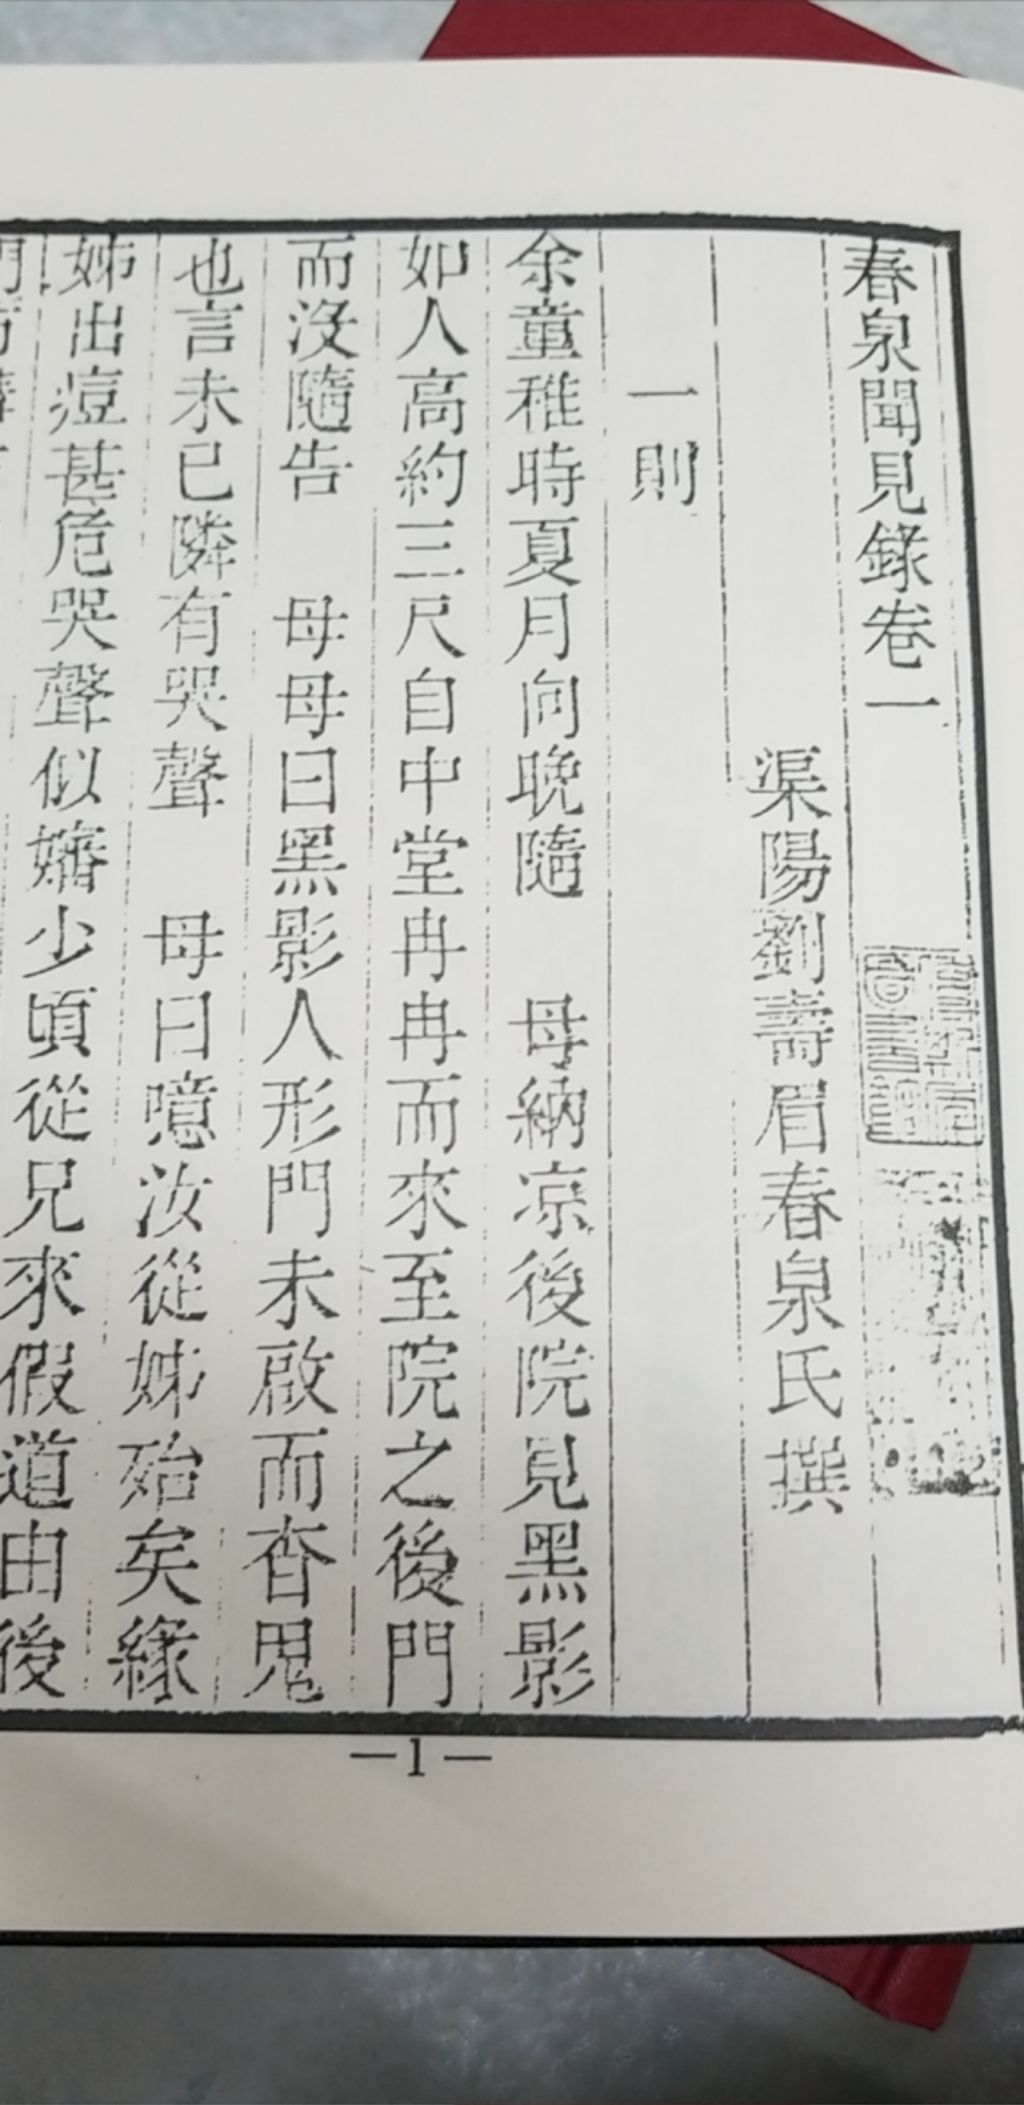 春泉聞見錄卷一
渠陽劉壽眉春泉氏撰
一則
余童稚時夏月向晚隨　母納凉後院見黑影
如人高約三尺自中堂冉冉而來至院之後門
而沒隨告　母母曰黑影人形門未啟而杳鬼
也言未已隣有哭聲　母曰噫汝從姊殆矣緣
姊出痘甚危哭聲似嬸少頃從兄來假道由後
—1—